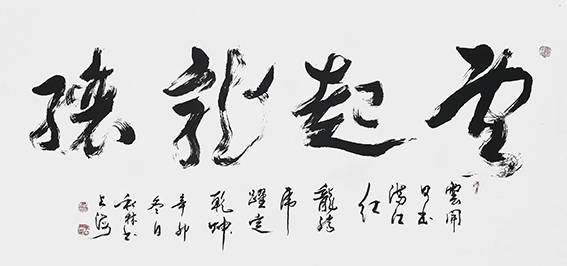 雲起龍驤
雲開
日出
滿江
紅
龍騰
虎
躍定
乾坤
辛卯
冬月
秋林书
上海